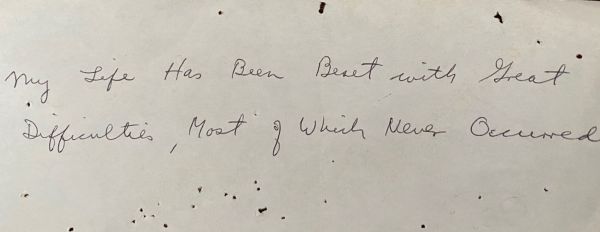 My Life Has Been Beset with Great
Difficulties, Most of Which Never Occurred